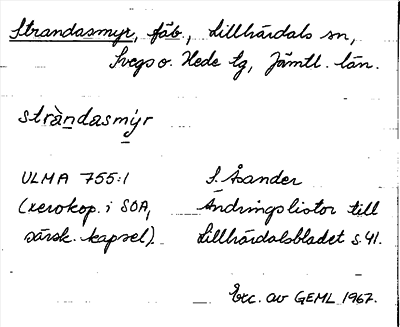 Strandasmyr, fäb., Lillhärdals sn,
Svegs o. Hede tg, Jämtl. län.
stràndasmýr
ULMA 755:1 L. Åsander
(xerokop. i SOA, Ändringslistor till
särsk. kapsel). Lillhärdalsbladet s. 41.
Exc. av GEML 1967.